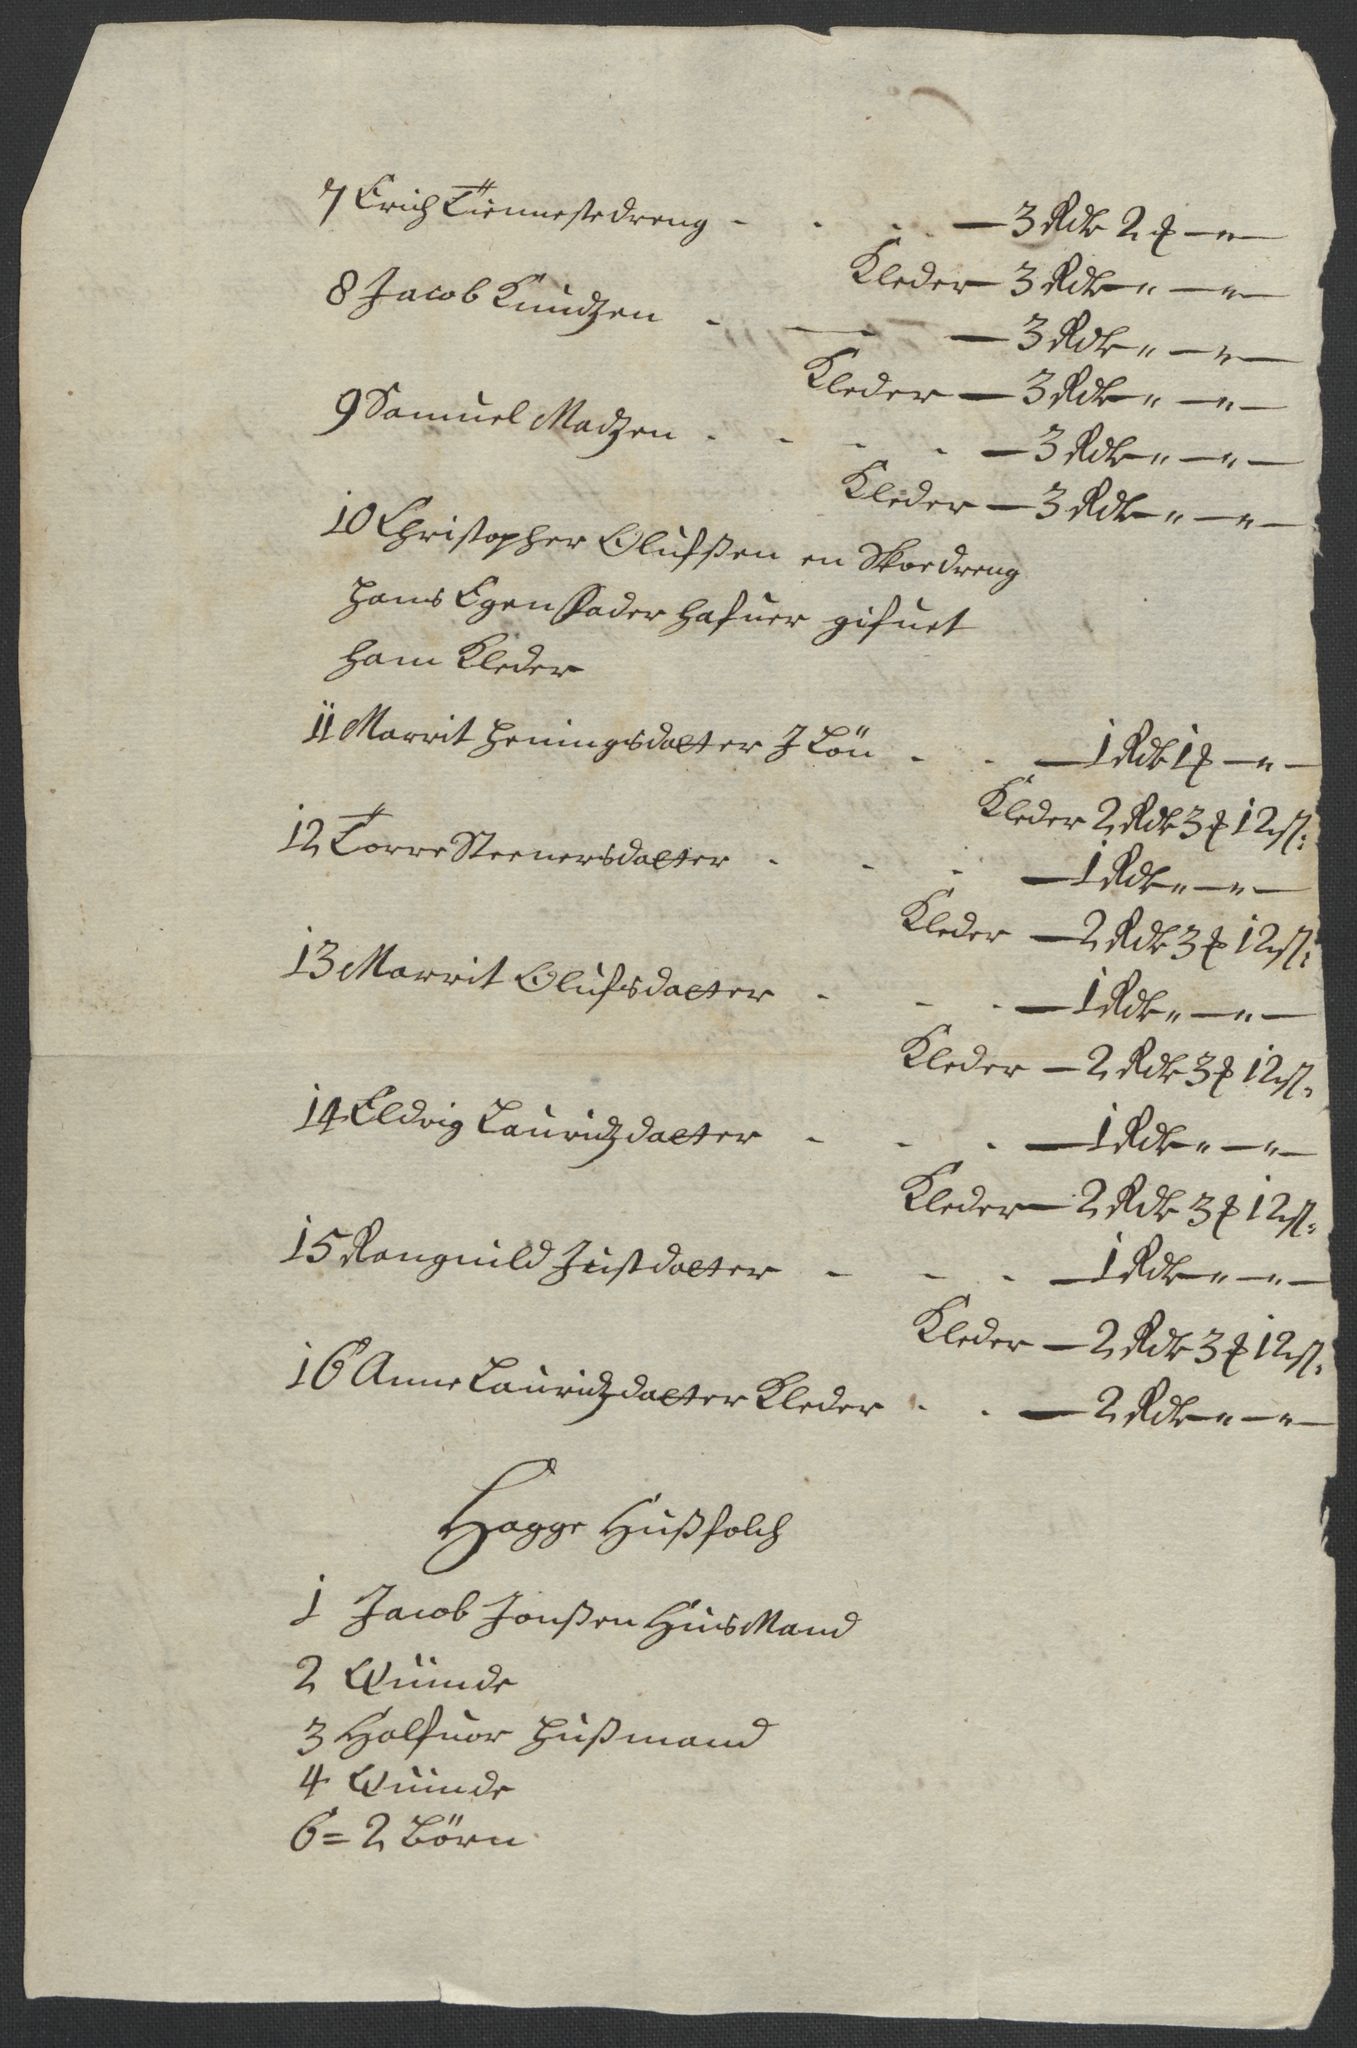 7 Erich Tiennestedreng - - - - 3 Rdr 2 ꝑ - " -
Kleder - 3 Rdr " - " -
8 Jacob Knudzen - - - 3 Rdr " - " -
Kleder - 3 Rdr " - " -
9 Samuel Madzen - - - - 3 Rdr " - " -
Kleder - 3 Rdr " - " -
10 Christopher Olufsen en Skoedreng
hans Egen Fader hafuer gifuet
ham Kleder
11 Marrit Heningsdatter J Lön - - - 1 Rdr 1 ꝑ - " -
Kleder 2 Rdr 3 ꝑ 12 s:
12 Torre Steenersdatter - - - 1 Rdr " - " -
Kleder - 2 Rdr 3 ꝑ 12 s:
13 Marrit Olufsdatter - - - 1 Rdr " - " -
Kleder - 2 Rdr 3 ꝑ 12 s:
14 Eldrig Lauridzdatter - - - 1 Rdr " - " -
Kleder - 2 Rdr 3 ꝑ 12 s:
15 Rangnild Justdatter - - - 1 Rdr " - " -
Kleder - 2 Rdr 3 ꝑ 12 s:
16 Anne Lauridzdatter Kleder - - - 2 Rdr " - " -
Hagge Hußfolch
1 Jacob Jonßen HuusMand
2 Quinde
3 Halfuor Hußmand
4 Quinde
6 = 2 Börn